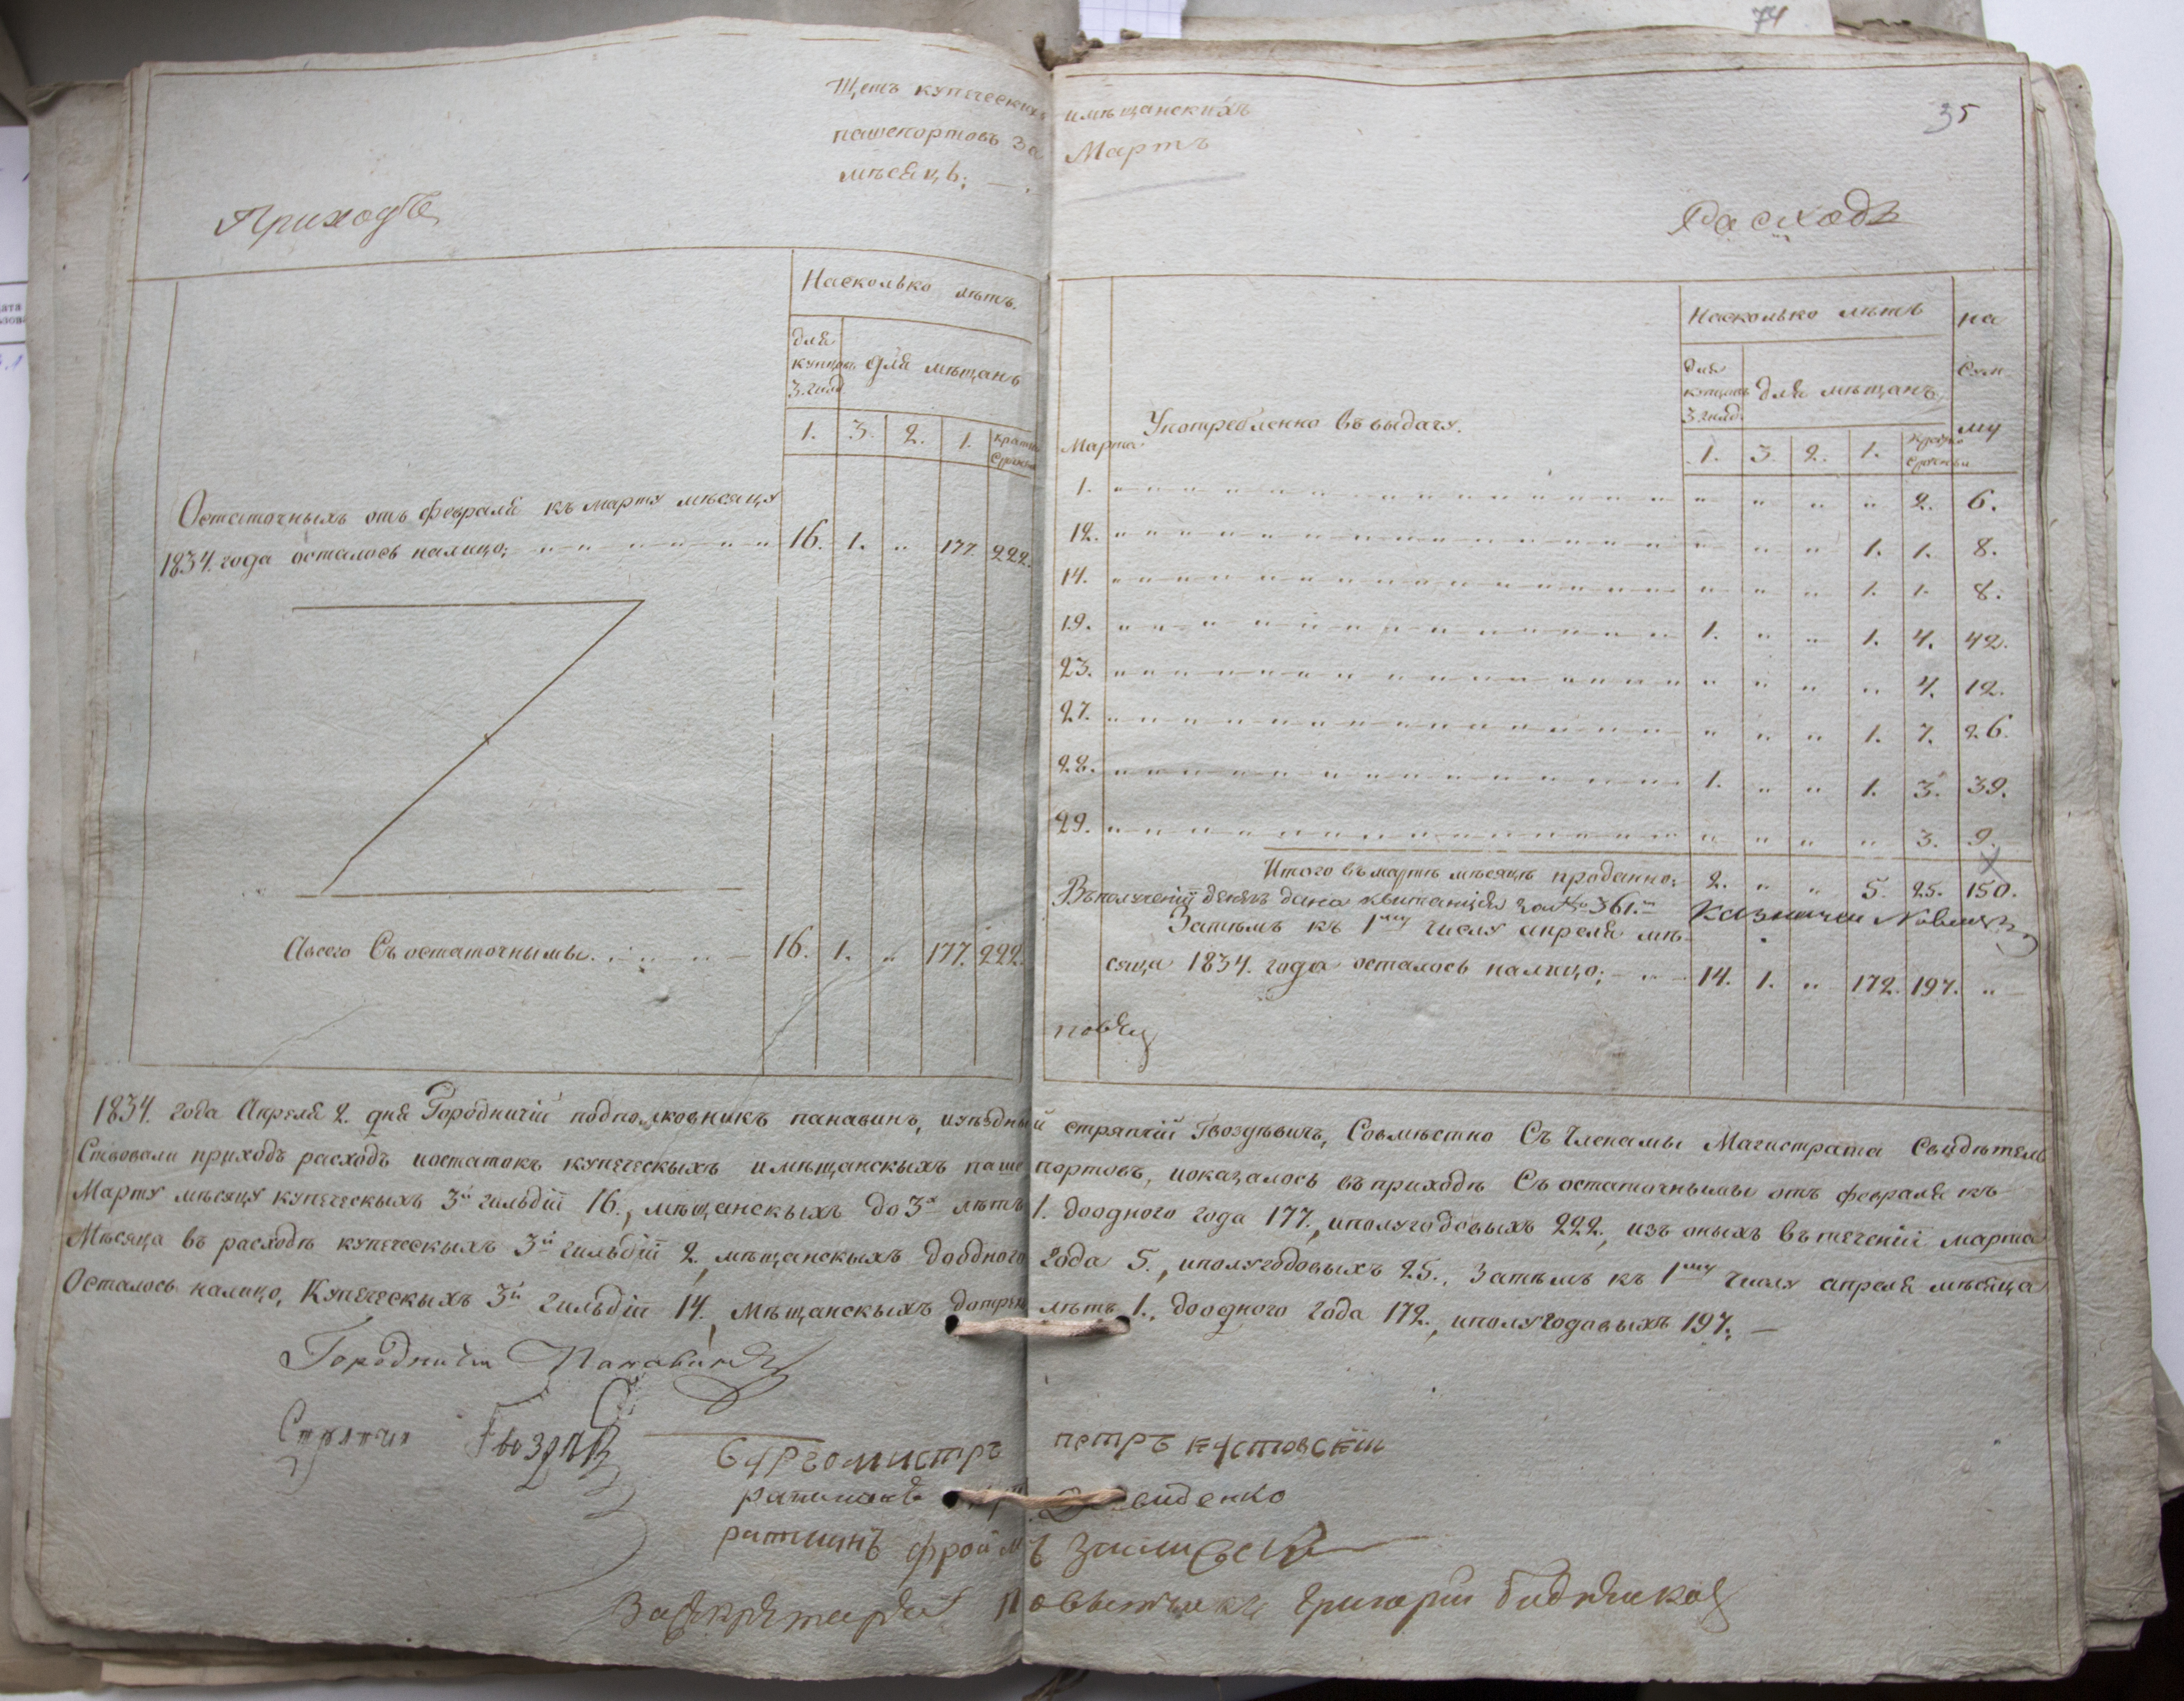 74
35
Щетъ купеческихъ имѣщанскихъ
пашепортовъ За Мартъ
мѣсяцъ;
Приходъ
Расходъ
Насколько лѣтъ.
для купцовъ 3. гилд
для мѣщанъ
1. 3. 2. 1. кратко срочн
Остаточныхъ отъ февраля къ марту мѣсяцу
1834. года осталось налицо; 16. 1. „ 177. 222.
Авсего Съ остаточнымы. 16. 1. „ 177. 222.
Насколько лѣтъ
на Сум му
для купцовъ 3. гилд.
для мѣщанъ
Марта Употребленно въ выдачу. 1. 3. 2. 1. кратко срочны
1. „ „ „ „ 2. 6.
12. „ „ „ 1. 1. 8.
14. „ „ „ 1. 1. 8.
19. 1. „ „ 1. 4. 42.
23. „ „ „ „ 4. 12.
27. „ „ „ 1. 7. 26.
28. 1. „ „ 1. 3. 39.
29. „ „ „ „ 3. 9.
Итого въ мартѣ мѣсяцѣ проданно; 2. „ „ 5. 25. 150.
Въполученіи денегъ дана квитанція за № 361.
Казначей
Затѣмъ къ 1му числу апреля мѣ-
сяца 1834. года осталось налицо; 14. 1. „ 172. 197. „
1834. года Апреля 2. дня Городничій подполковникъ панавинъ, иуѣздный стряпчій Гвоздѣвичъ, Совмѣстно Съ Членамы Магистрата Свидѣтель
Ствовали приходъ расходъ иостатокъ купеческыхъ имѣщанскыхъ пашепортовъ, иоказалось въ приходѣ Съ остаточнымы отъ февраля къ
Марту мѣсяцу купеческыхъ 3й гильдіи 16., мѣщанскыхъ до 3х лѣтъ 1. доодного года 177., иполугодовыхъ 222., изъ оныхъ въ теченіи марта
Мѣсяца въ расходѣ купеческыхъ 3й гильдіи 2. мѣщанскыхъ доодного года 5., иполугодовыхъ 25., Затѣмъ къ 1му числу апреля мѣсяца
Осталось налицо, Купеческыхъ 3й гильдіи 14., Мѣщанскыхъ дотрехъ лѣтъ 1., доодного года 172., иполугодовыхъ 197.
Городничи Панавинъ
Стряпчи
бургомистръ петръ кустовскій
ратманъ Давиденко
ратманъ фроимъ
Засекретаря Повытчикъ Григорий